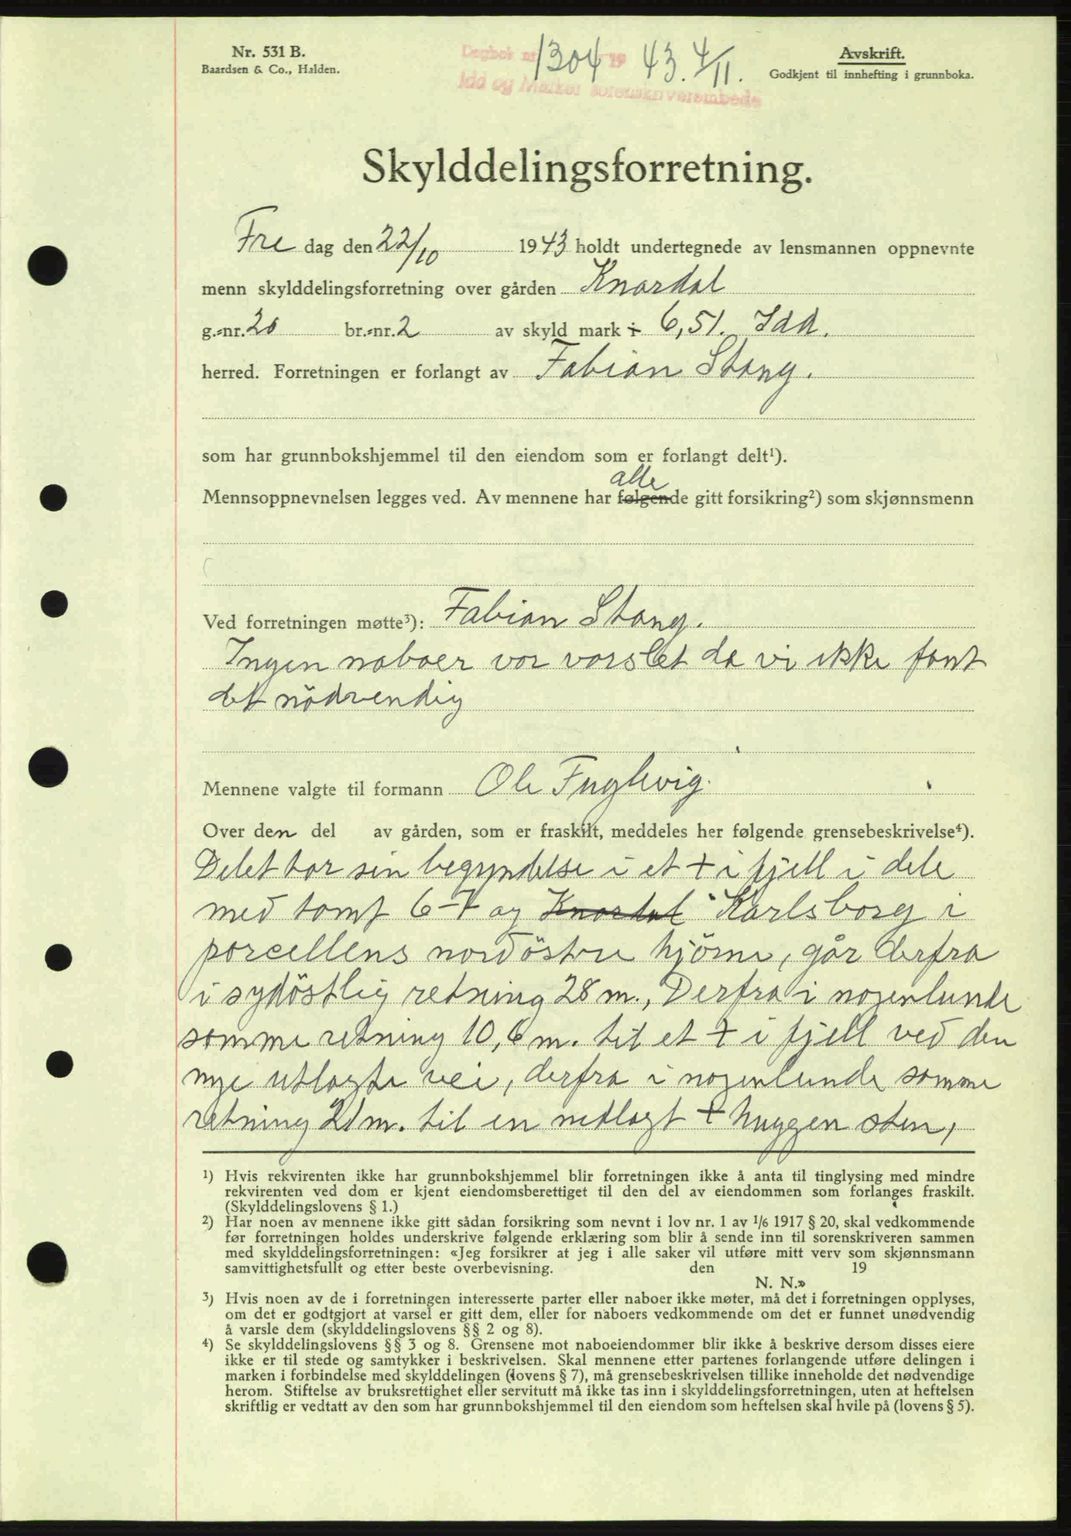 Nr. 531 B.
Baardsen & Co., Halden.
Dagbok nr. 1304 19 43. 4/11.
Idd og Marker sorenskriverembede
Avskrift.
Godkjent til innhefting i grunnboka.
Skylddelingsforretning.
Fre dag den 22/10 1943 holdt undertegnede av lensmannen oppnevnte
menn skylddelingsforretning over gården Knardal
g.-nr. 20 br.-nr. 2 av skyld mark 6,51. Idd.
herred. Forretningen er forlangt av Fabian Stang.
som har grunnbokshjemmel til den eiendom som er forlangt delt¹).
alle
Mennsoppnevnelsen legges ved. Av mennene har følgende gitt forsikring²) som skjønnsmenn
Ved forretningen møtte³): Fabian Stang.
Ingen naboer var varslet da vi ikke fant
det nödvendig
Mennene valgte til formann Ole Fuglevig.
Over den del av gården, som er fraskilt, meddeles her følgende grensebeskrivelse⁴).
Delet tar sin begyndelse i et + i fjell i dele
med tomt 6-7 og Knardal Karlsborg i
porcellens nordöstre hjörne, går derfra
i sydöstlig retning 28 m., Derfra i nogenlunde
samme retning 10,6 m. til et + i fjell ved den
nye utlagte vei, derfra i nogenlunde samme
retning 21 m. til en nedlagt + huggen sten,
¹) Hvis rekvirenten ikke har grunnbokshjemmel blir forretningen ikke å anta til tinglysing med mindre
rekvirenten ved dom er kjent eiendomsberettiget til den del av eiendommen som forlanges fraskilt.
(Skylddelingslovens § 1.)
²) Har noen av mennene ikke gitt sådan forsikring som nevnt i lov nr. 1 av 1/6 1917 § 20, skal vedkommende
før forretningen holdes underskrive følgende erklæring som blir å sende inn til sorenskriveren sammen
med skylddelingsforretningen: «Jeg forsikrer at jeg i alle saker vil utføre mitt verv som skjønnsmann
samvittighetsfullt og etter beste overbevisning. den 19
N. N.»
³) Hvis noen av de i forretningen interesserte parter eller naboer ikke møter, må det i forretningen opplyses,
om det er godtgjort at varsel er gitt dem, eller for naboers vedkommende om det er funnet unødvendig
å varsle dem (skylddelingslovens §§ 2 og 8).
⁴) Se skylddelingslovens §§ 3 og 8. Grensene mot naboeiendommer blir ikke å beskrive dersom disses eiere
ikke er til stede og samtykker i beskrivelsen. Skal mennene etter partenes forlangende utføre delingen i
marken i forbindelse med skylddelingen (lovens § 7), må grensebeskrivelsen tillike inneholde det nødvendige
herom. Stiftelse av bruksrettighet eller servitutt må ikke tas inn i skylddelingsforretningen, uten at heftelsen
skriftlig er vedtatt av den som har grunnbokshjemmel til den eiendom som heftelsen skal hvile på (lovens § 5).